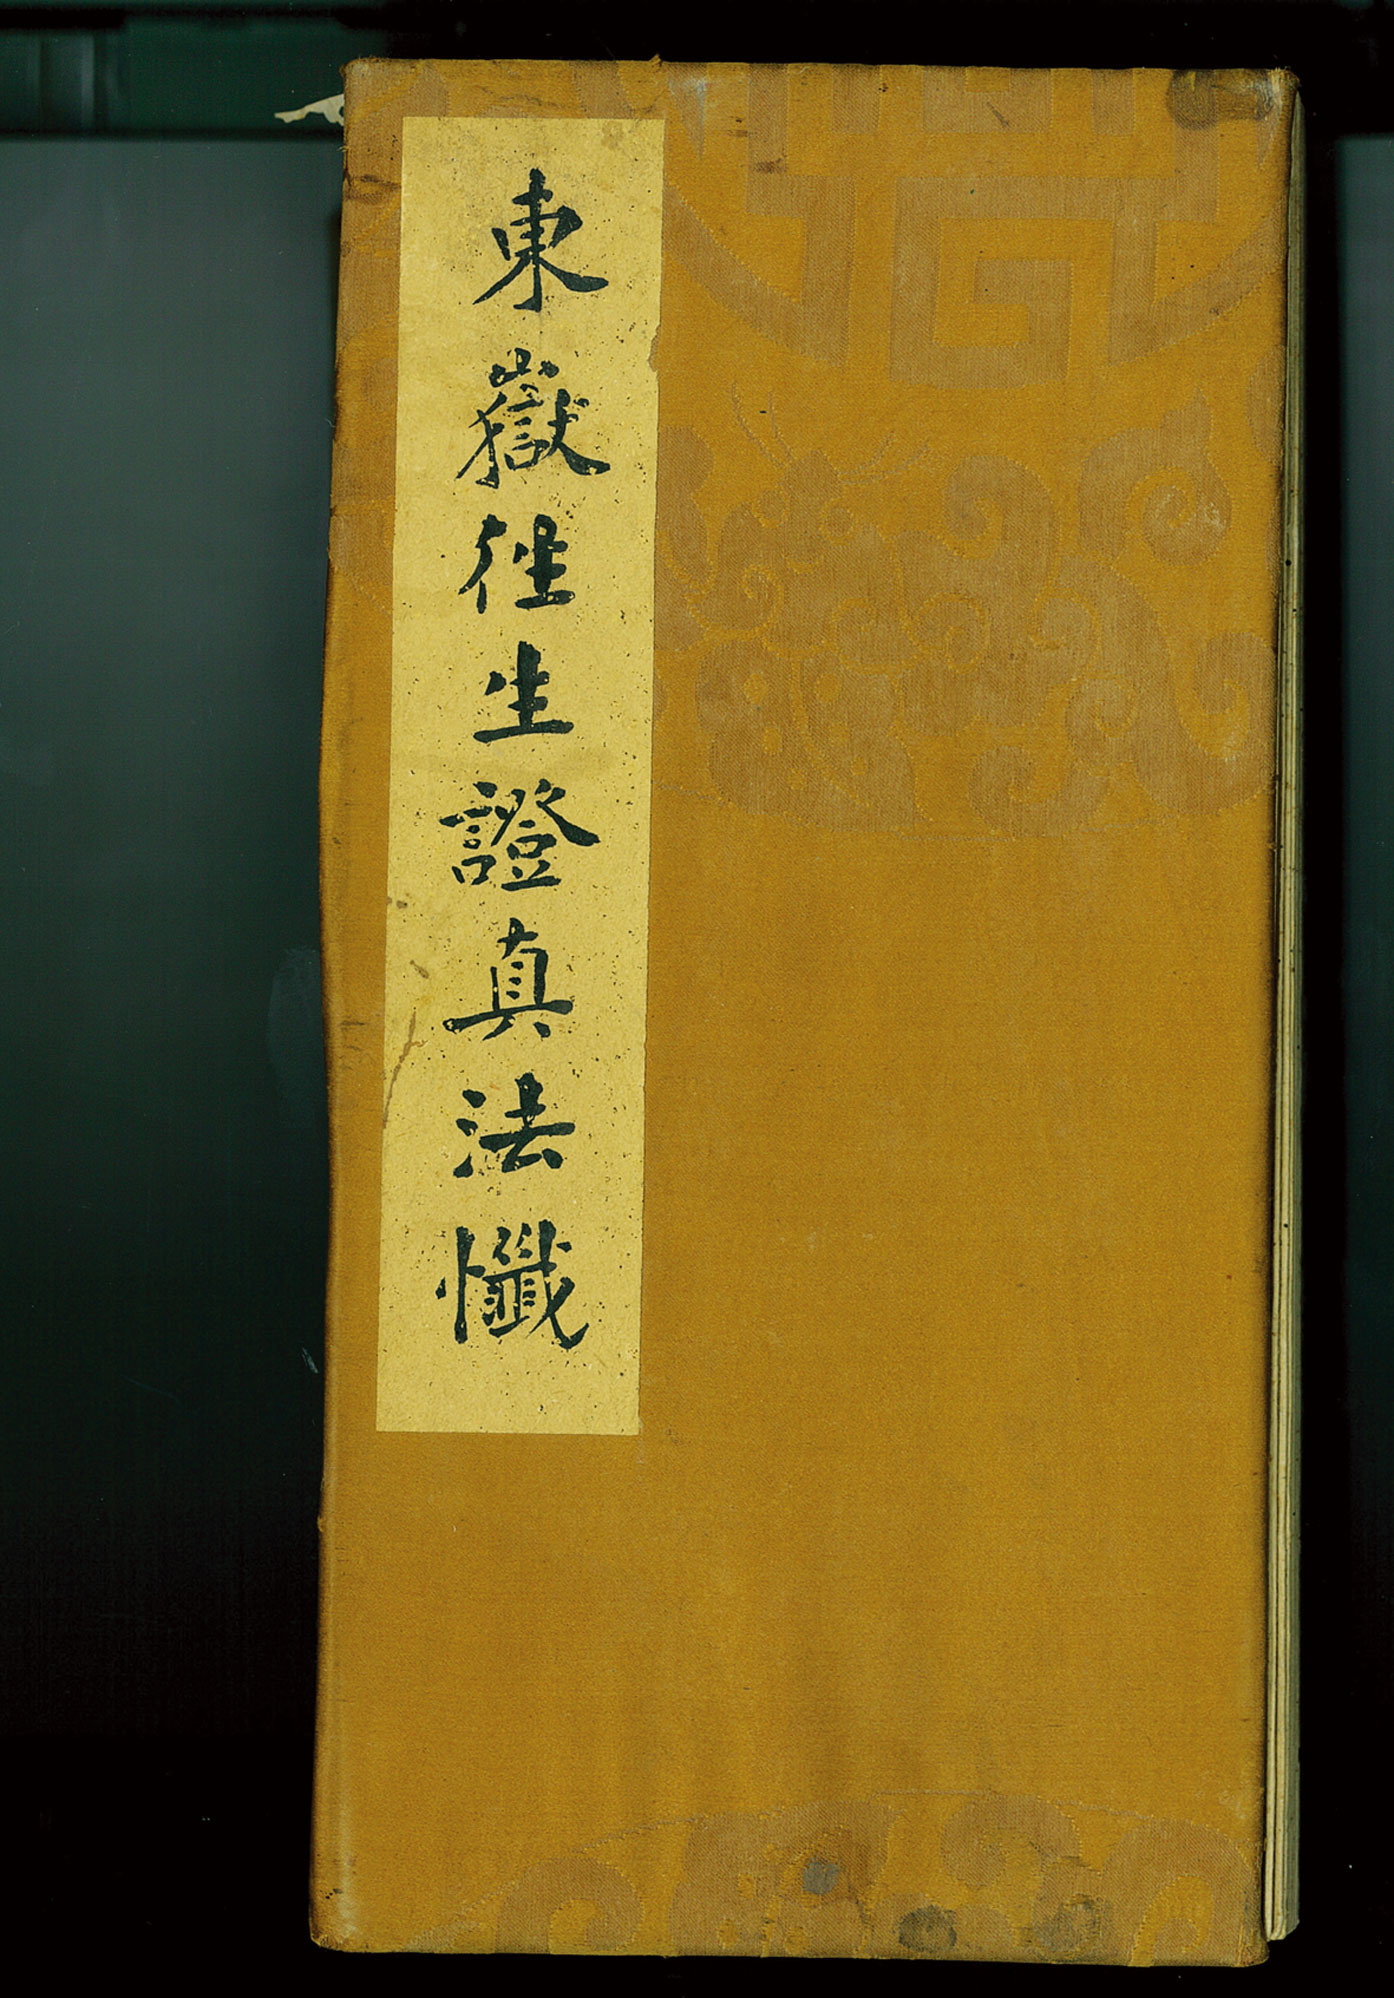 東嶽徃生證真法懺